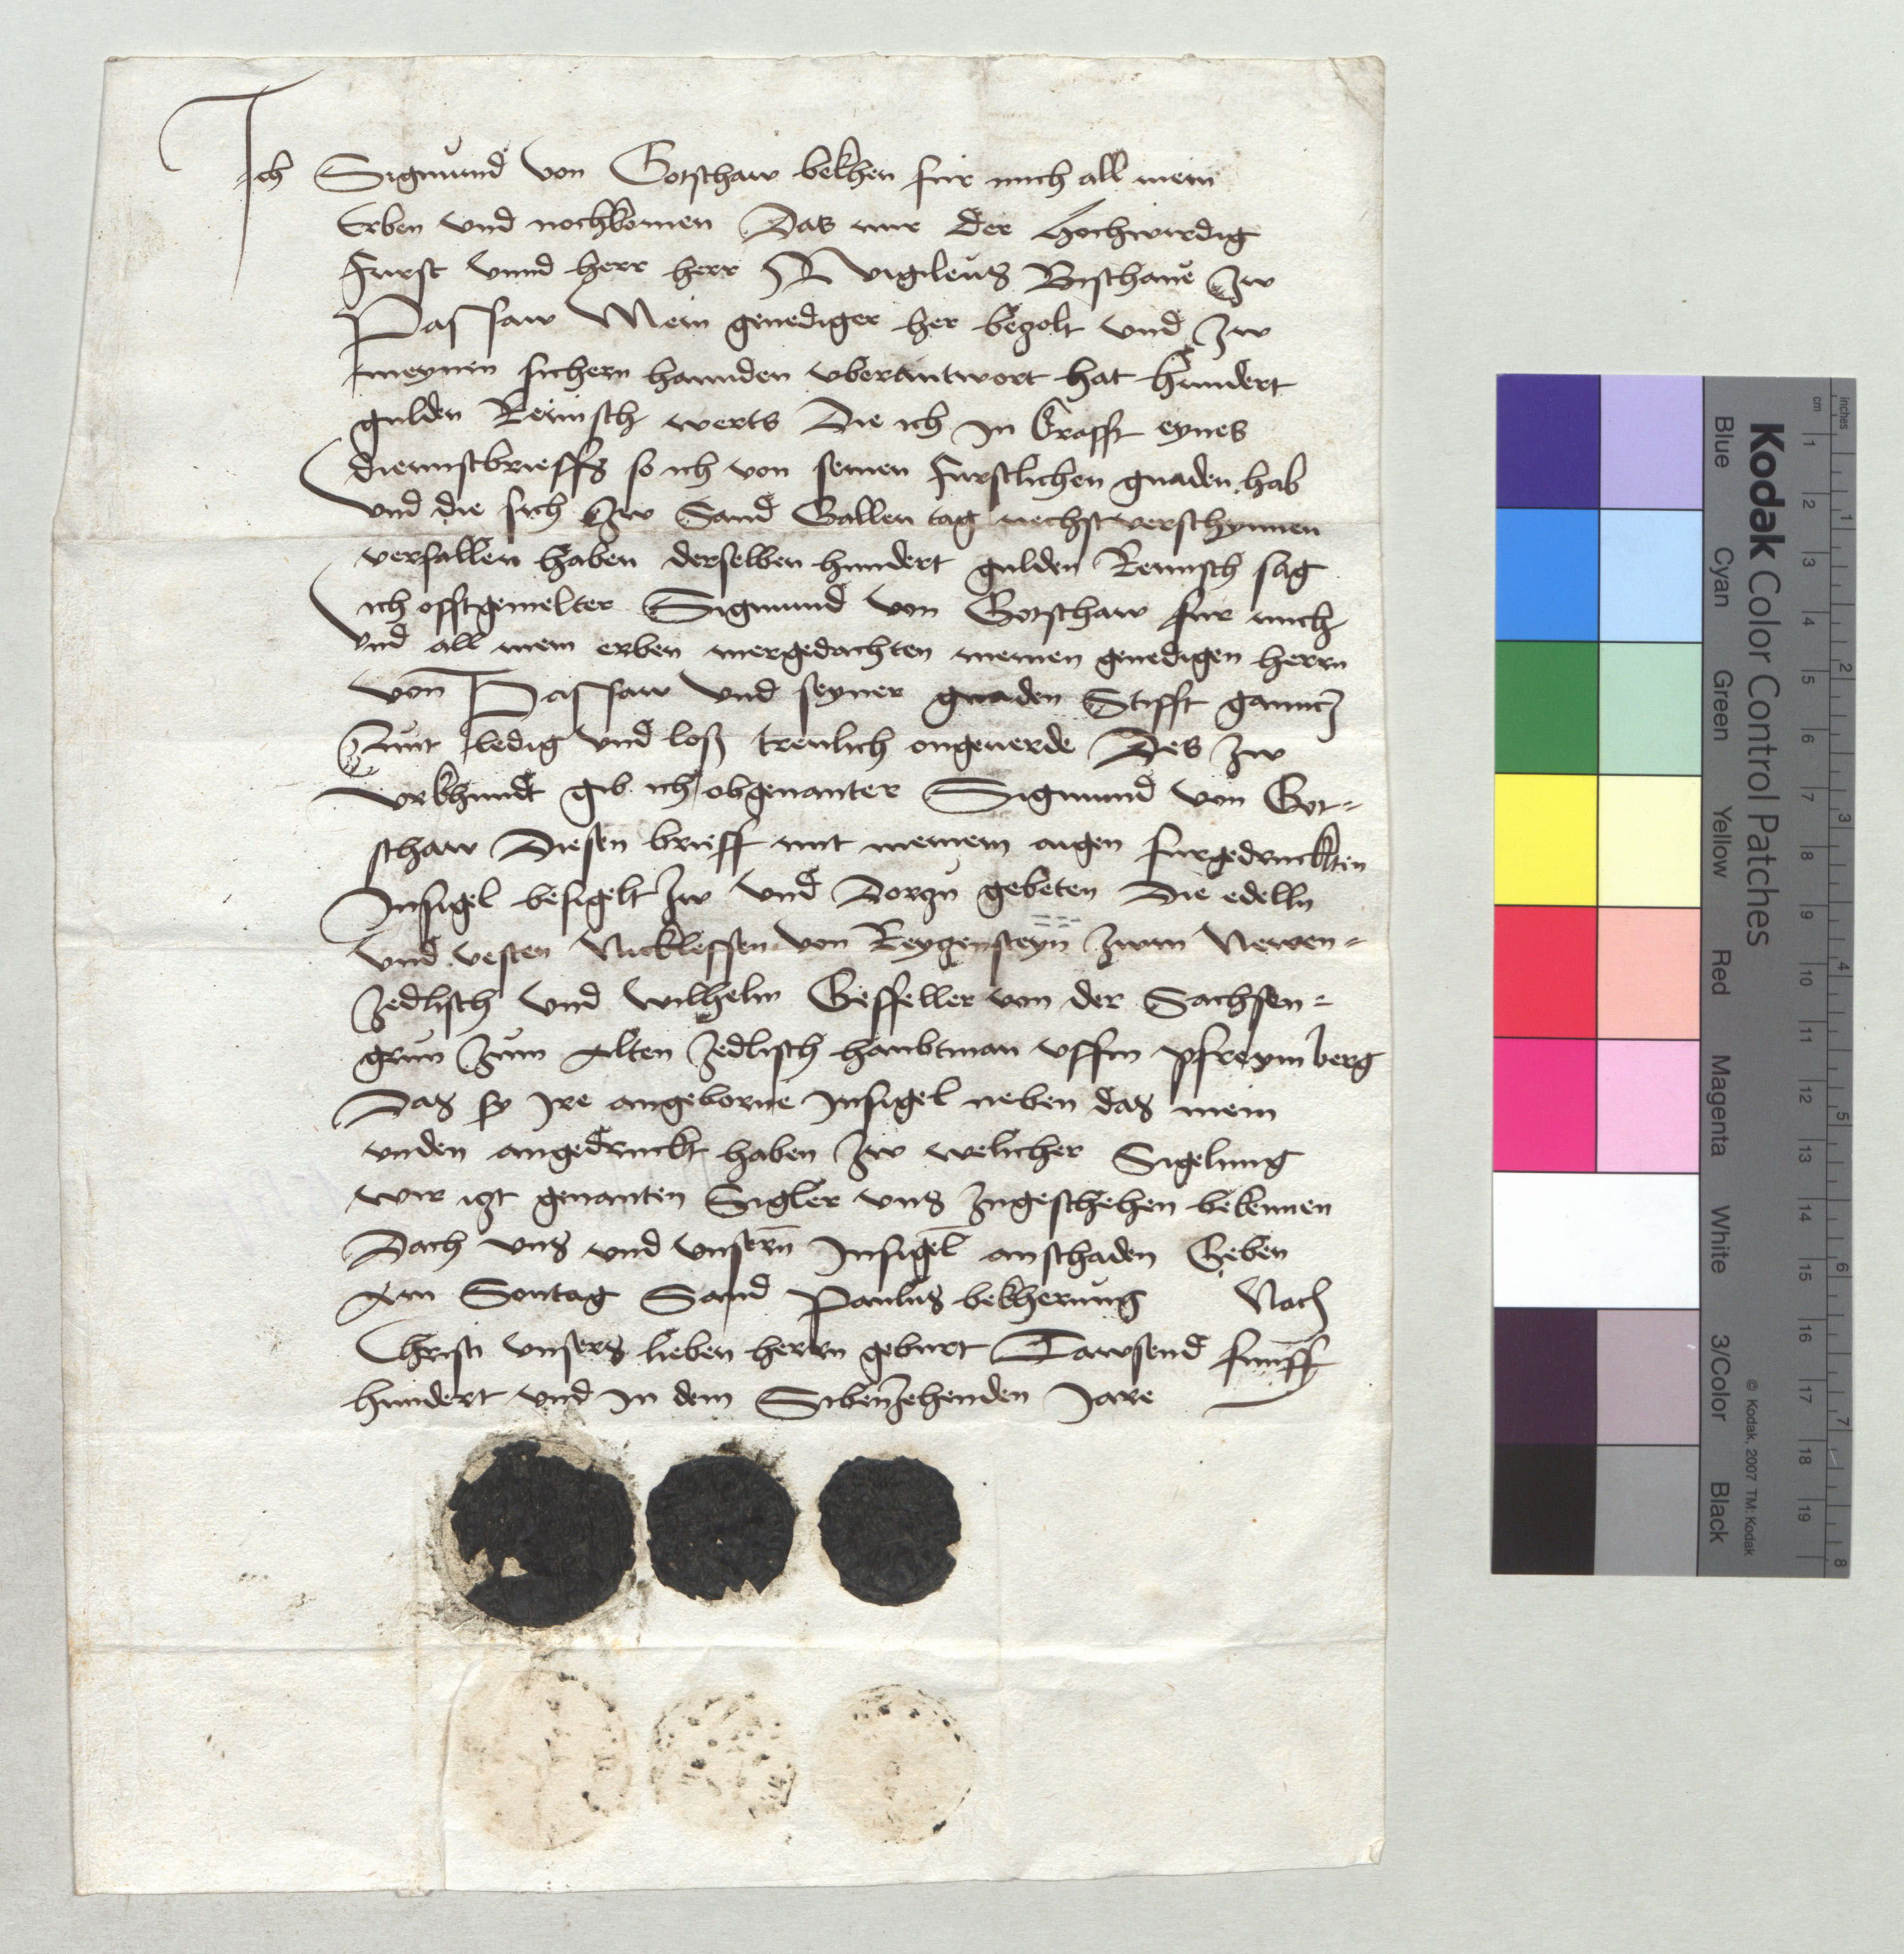 Ich Sigmund von Gotschaw bekhen fur mich all mein
Erben vnd nochkomen Das mir der Hochwirdig
Furst vnnd herr herr Wigileus Bischaue Zw
Passaw Mein genediger her bezolt vnd Zw
meynen sichern hannden vberantwort hat hundert
gulden Reinisch werts Die ich In Crafft eynes
diennstbrieffs so ich von seinen Furstlichen gnaden hab
vnd die sich Zw Sand Gallen tag nechstverschynnen
verfallen haben derselben hundert gulden Reinisch sag
ich offtgemelter Sigmund von Gotschaw fur mich
vnd all mein erben mergedachten meinen genedigen herrn
von Passaw vnd seyner gnaden Stifft ganntz
Quit ledig vnd loß treulich ongeuerde Des Zw
vrkhundt gib ich obgenanter Sigmund von Got-
schaw Diesen brieff mit meinem aigen furgedruckten
Insigel besigelt Zw vnd Dorzu gebeten Die edelln
vnd vesten Nicklessen von Reygensteyn Zwm Newen-
Zedlisch vnd Wilhelm Gesseller von der Sachsen-
grun Zum Alten Zedlisch haubtman vffm pfreymberg
Das sy Ire angeborne Insigel neben das mein
vnden angedruckt haben Zw welicher Sigelung
wir izt genanten Sigler vns Zugeschehen bekennen
Doch vns vnd vnsern Insigel anschaden Geben
Am Sontag Sand Paulus bekherung Nach
Christi vnsers lieben herrn geburt Tawsend funff
hundert vnd In dem Sibenzehenden Jare
Kodak Color Control Patches
Blue Cyan Green Yellow Red Magenta White 3/Color Black
© Kodak, 2007 TM: Kodak
cm 1 2 3 4 5 6 7 8 9 10 11 12 13 14 15 16 17 18 19
inches 1 2 3 4 5 6 7 8